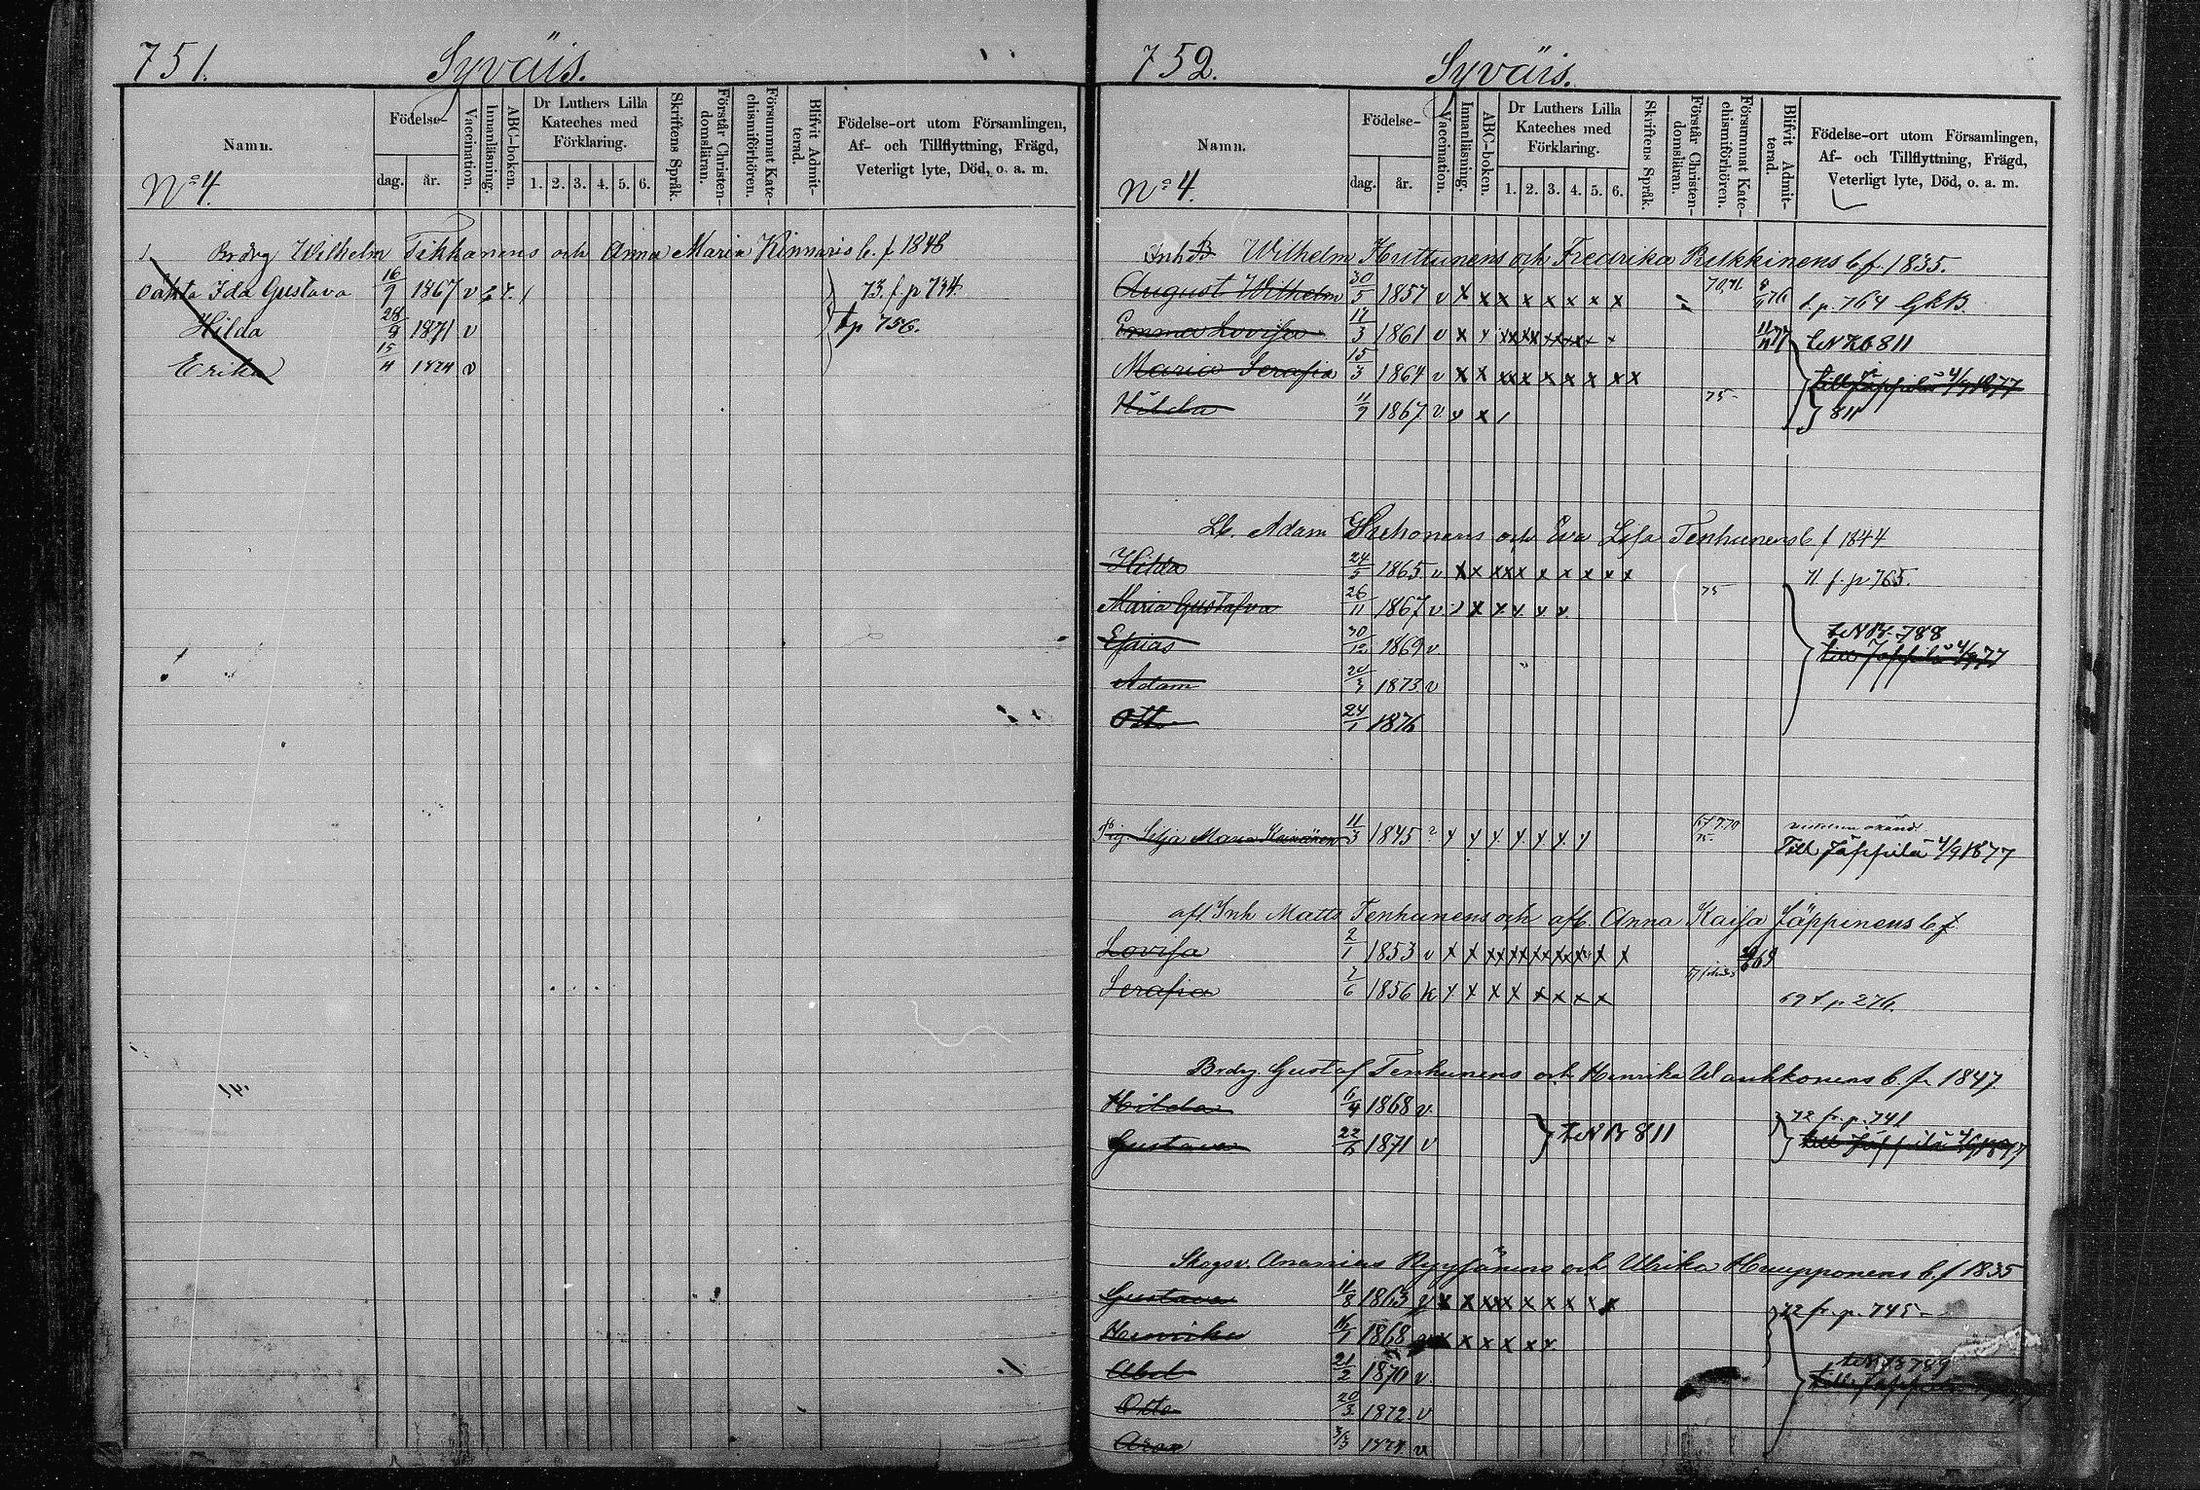 751.
Syväis.
Namn.
Födelse-
dag.
år.
Vaccination.
Innanläsning.
ABC-boken.
Dr Luthers Lilla
Kateches med
Förklaring.
1. 2. 3. 4. 5. 6.
Skriftens Språk.
Förstår Christen-
domsläran.
Försummat Kate-
chismiförhören.
Blifvit Admit-
terad.
Födelse-ort utom Församlingen,
Af- och Tillflyttning, Frägd,
Veterligt lyte, Död, o. a. m.
No 4.
Brdrg Wilhelm Tikkanens och Anna Maria Kinnaris b. f 1848
Ida Gustava 16/9 1867 v 73. f. p 734.
Hilda 28/9 1871 v tp 756.
Erika 15/4 1874 v
752.
Syväis.
Namn.
Födelse-
dag.
år.
Vaccination.
Innanläsning.
ABC-boken.
Dr Luthers Lilla
Kateches med
Förklaring.
1. 2. 3. 4. 5. 6.
Skriftens Språk.
Förstår Christen-
domsläran.
Försummat Kate-
chismiförhören.
Blifvit Admit-
terad.
Födelse-ort utom Församlingen,
Af- och Tillflyttning, Frägd,
Veterligt lyte, Död, o. a. m.
No 4.
Inh Wilhelm Huttunens och Fredrika Pulkkinens b f. 1835.
August Wilhelm 30/5 1857 v x x x x x x x x 70,71 t. p. 764 GkB.
Emma Lovisa 17/3 1861 v x x 11/11 77 t N B 811
Maria Serafia 15/3 1864 v x x x x x x x x till Jäppilä 4/9 1877
Hilda 11/9 1867 v. x x / 75 811
Lb. Adam Hirhonens och Eva Lisa Tenhunens b f 1844
Hilda 24/5 1865 v x x x x x x x x 71 f. p 765.
Maria Gustafva 26/11 1867 v 75
Esaias 30/12 1869 v. t N B. 788
till Jäppilä 4/9 77
Adam 24/3 1873 v
Otto 24/1 1876
Pig. Maria 11/3 1845
Till Jäppilä 4/9 1877
afl. Inh Matts Tenhunens och afl. Anna Kaisa Jäppinens b f.
Lovisa 2/1 1853 v x x x x x x x x 69
Serafia 2/6 1856 k x x x x x x x x 69 f. p 276.
Brdrg. Gustaf Tenhunens och Henrika Wauhkonens b. f. 1847
Hilda 6/4 1868 v. 72 fr. p. 741
Gustava 22/6 1871 v t N B 811 till Jäppilä 4/9 1877
Skogsv. Ananias Hyysänens och Ulrika Haupponens b. f 1835
Gustava 11/8 1863 v x x x x x x x x 72 fr. p. 745
Henrika 16/1 1868 x x x x x x
Abel 21/2 1870 v t N B 789
Otto 20/3 1872. v
Aron 3/3 1874 v